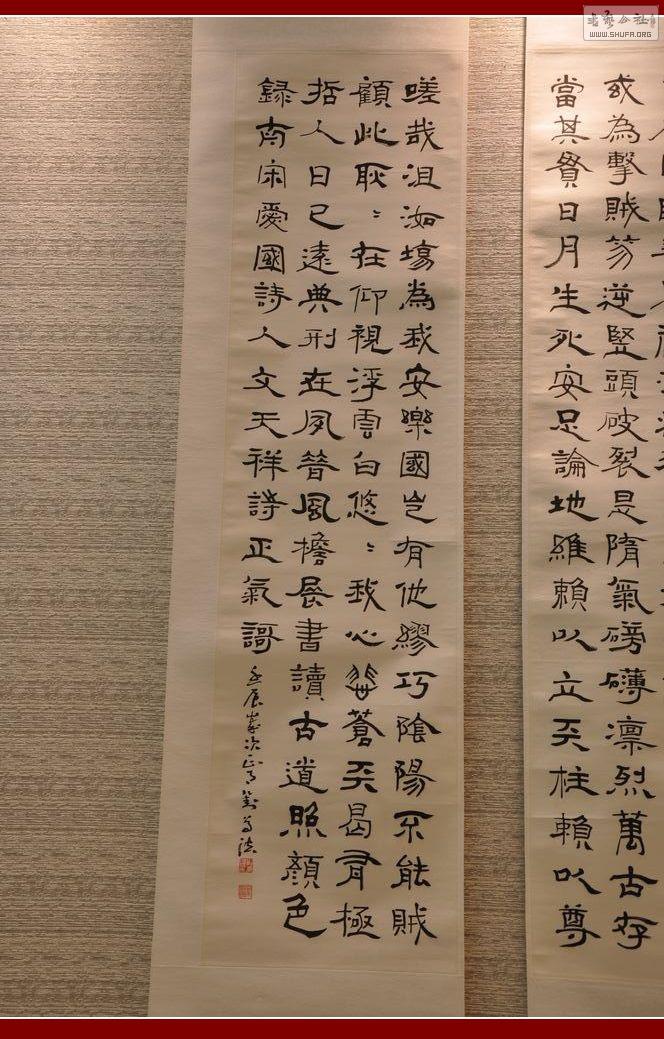 或為擊賊笏逆豎頭破裂是隋氣磅礴凛烈萬古存
當其貫日月生死安足論地維賴以立天柱賴以尊
嗟哉沮洳塲為我安樂國岂有他繆巧陰陽不能賊
顧此耿〻在仰視浮雲白悠〻我心悲蒼天曷有極
哲人日已遠典刑在夙昔風檐展書讀古道照顏色
錄南宋愛國詩人文天祥詩正氣謌
壬辰歲次正月
書藝公社
WWW.SHUFA.ORG